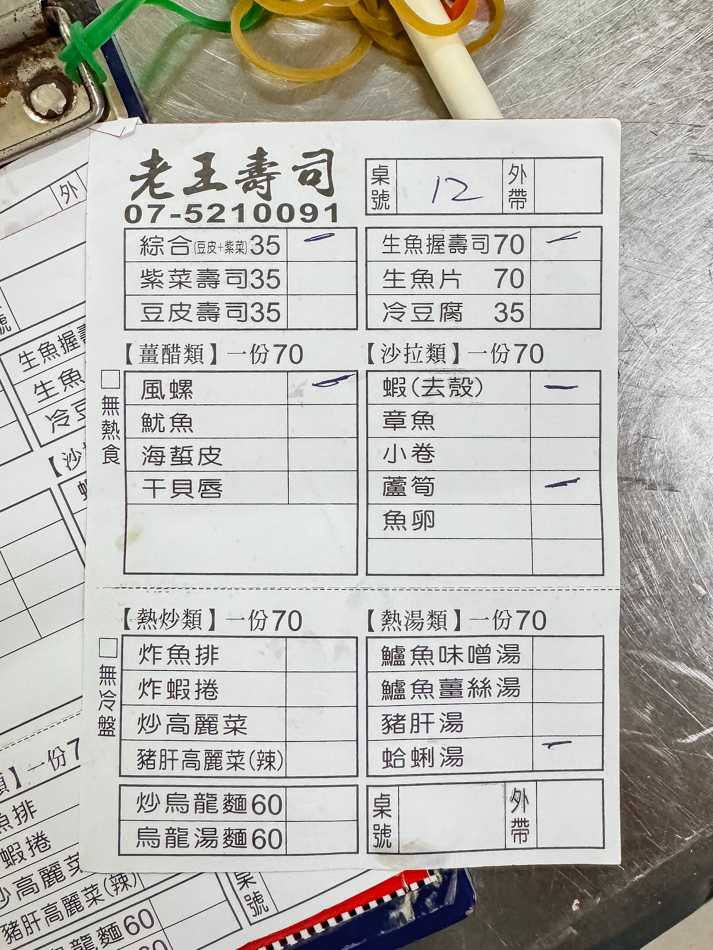 老王壽司
07-5210091
桌號 12 外帶
綜合(豆皮+紫菜)35
紫菜壽司35
豆皮壽司35
生魚握壽司70
生魚片 70
冷豆腐 35
【薑醋類】一份70
□無熱食
風螺
魷魚
海蜇皮
干貝唇
【沙拉類】一份70
蝦(去殼)
章魚
小卷
蘆筍
魚卵
【熱炒類】一份70
□無冷盤
炸魚排
炸蝦捲
炒高麗菜
豬肝高麗菜(辣)
炒烏龍麵60
烏龍湯麵60
【熱湯類】一份70
鱸魚味噌湯
鱸魚薑絲湯
豬肝湯
蛤蜊湯
桌號 外帶
外
號
生魚握
生魚
冷豆
【沙
一份7
魚排
蝦捲
炒高麗菜
豬肝高麗菜(辣)
烏龍麵60
桌號